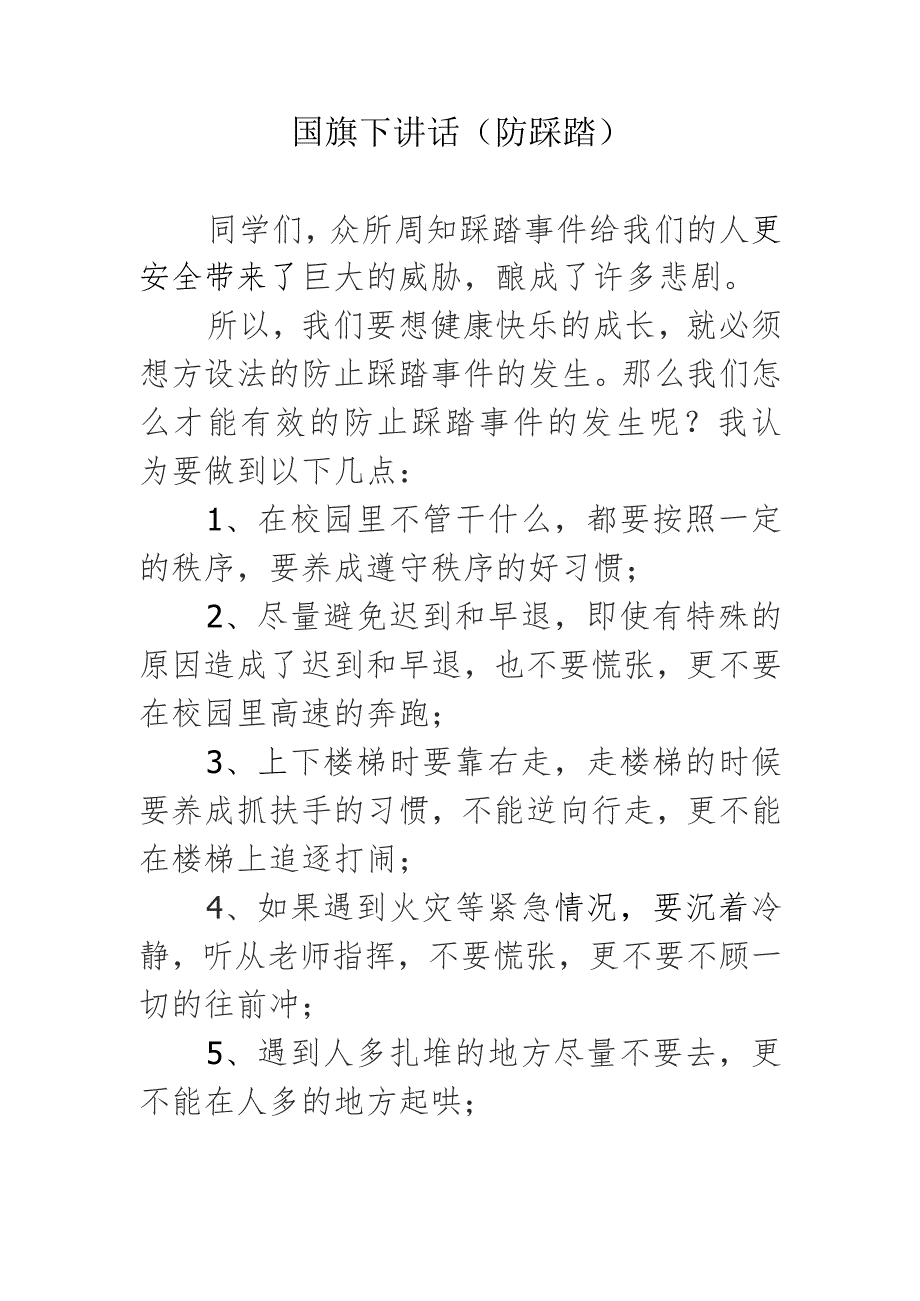 国旗下讲话（防踩踏）
同学们，众所周知踩踏事件给我们的人更
安全带来了巨大的威胁，酿成了许多悲剧。
所以，我们要想健康快乐的成长，就必须
想方设法的防止踩踏事件的发生。那么我们怎
么才能有效的防止踩踏事件的发生呢？我认
为要做到以下几点：
1、在校园里不管干什么，都要按照一定
的秩序，要养成遵守秩序的好习惯；
2、尽量避免迟到和早退，即使有特殊的
原因造成了迟到和早退，也不要慌张，更不要
在校园里高速的奔跑；
3、上下楼梯时要靠右走，走楼梯的时候
要养成抓扶手的习惯，不能逆向行走，更不能
在楼梯上追逐打闹；
4、如果遇到火灾等紧急情况，要沉着冷
静，听从老师指挥，不要慌张，更不要不顾一
切的往前冲；
5、遇到人多扎堆的地方尽量不要去，更
不能在人多的地方起哄；